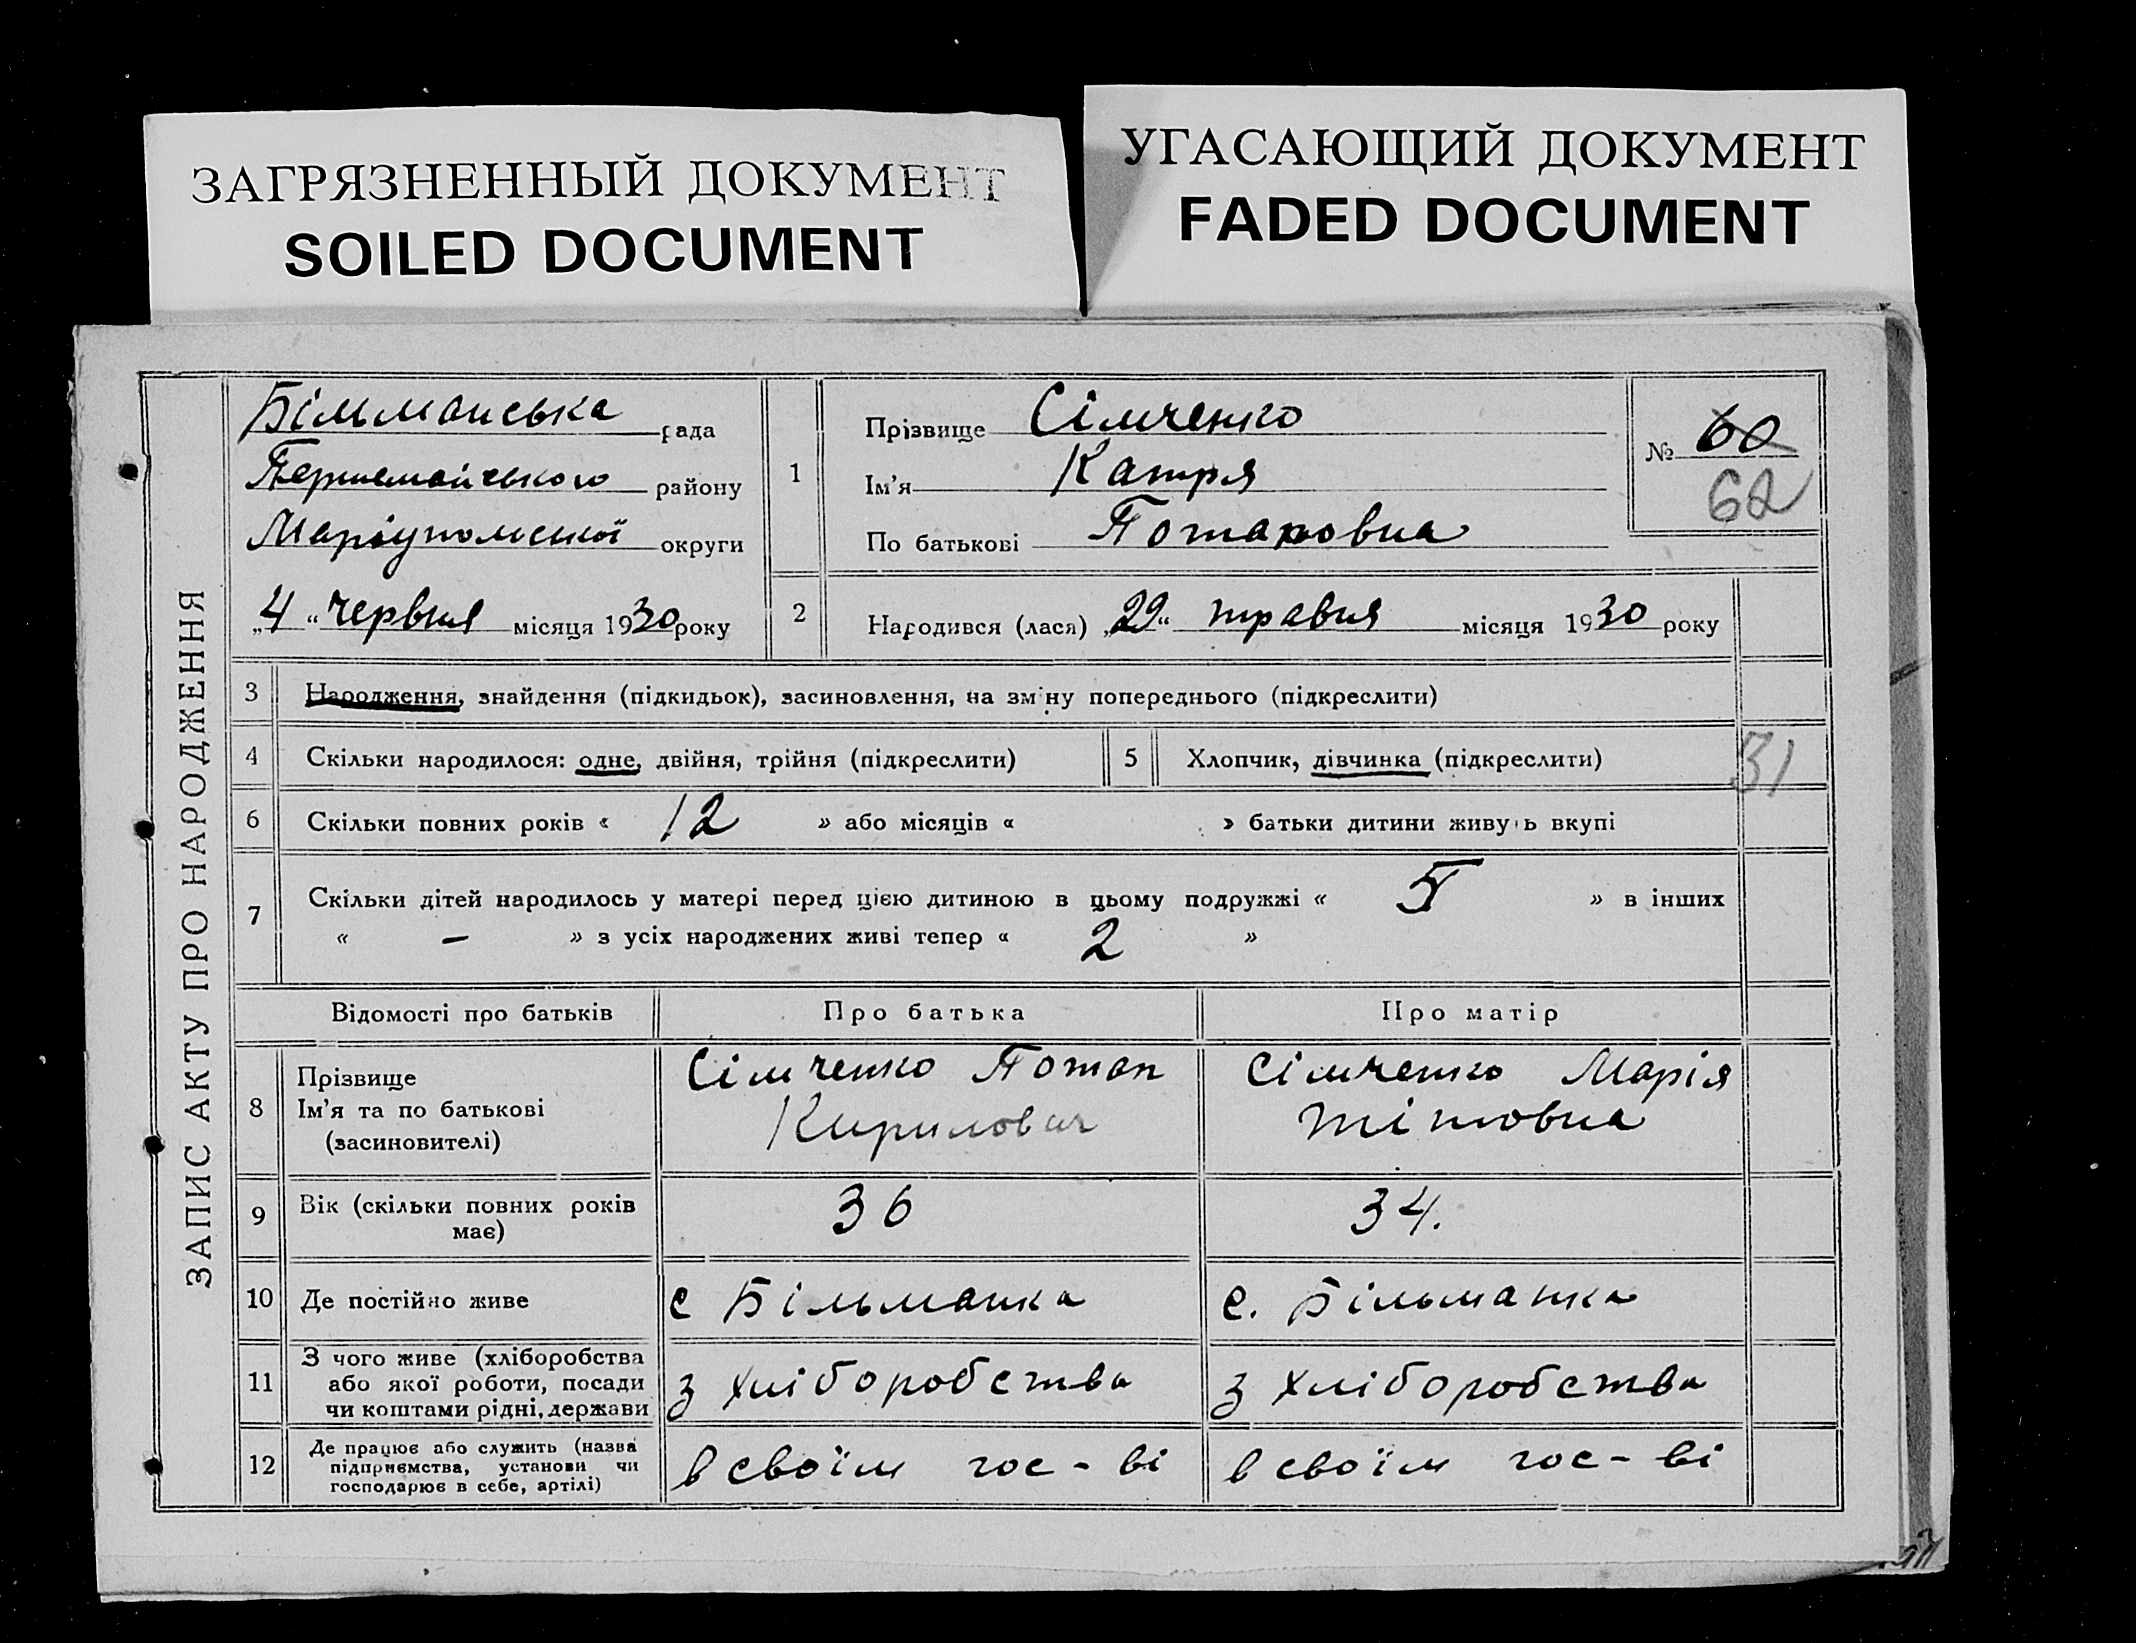 ЗАГРЯЗНЕННЫЙ ДОКУМЕНТ
SOILED DOCUMENT
УГАСАЮЩИЙ ДОКУМЕНТ
FADED DOCUMENT
ЗАПИС АКТУ ПРО НАРОДЖЕННЯ
Більманська рада
Першемайського району
Маріупольської округи
„4“ червня місяця 1930 року
1
Прізвище Сімченко
Ім'я Катря
По батькові Потаповна
№ 60
62
2 Народився (лася) „29“ травня місяця 1930 року
3 Народження, знайдення (підкидьок), засиновлення, на зміну попереднього (підкреслити)
4 Скільки народилося: одне, двійня, трійня (підкреслити) 5 Хлопчик, дівчинка (підкреслити)
31
6 Скільки повних років « 12 » або місяців « » батьки дитини живуть вкупі
7 Скільки дітей народилось у матері перед цією дитиною в цьому подружжі « 5 » в інших
« – » з усіх народжених живі тепер « 2 »
Відомості про батьків Про батька Про матір
8 Прізвище
Ім'я та по батькові
(засиновителі)
Сімченко Потап
Кирилович
Сімченко Марія
Тітовна
9 Вік (скільки повних років
має)
36 34.
10 Де постійно живе с Більманка с. Більманка
11 З чого живе (хліборобства
або якої роботи, посади
чи коштами рідні, держави
з хліборобства з хліборобства
12 Де працює або служить (назва
підприємства, установи чи
господарює в себе, артілі)
в своїм гос-ві в своїм гос-ві